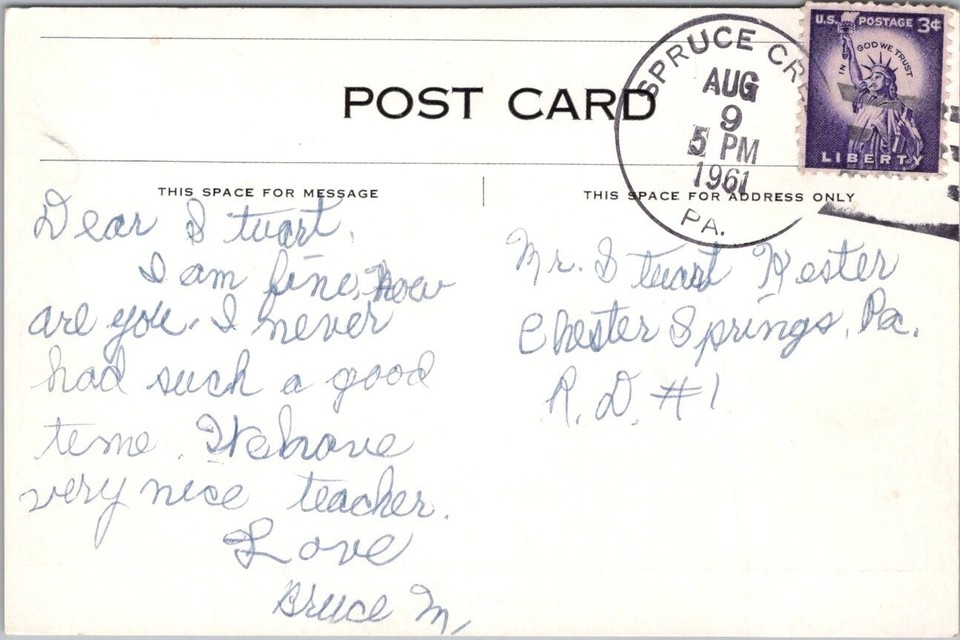 POST CARD
SPRUCE CR
AUG
9
5 PM
1961
PA.
U.S. POSTAGE 3¢
IN GOD WE TRUST
LIBERTY
THIS SPACE FOR MESSAGE
Dear Stuart,
I am fine, How
are you. I never
had such a good
teme. We have
very nice teacher.
Love
Bruce M.
THIS SPACE FOR ADDRESS ONLY
Mr. Stuart Hester
Chester Springs, Pa.
R. D. #1